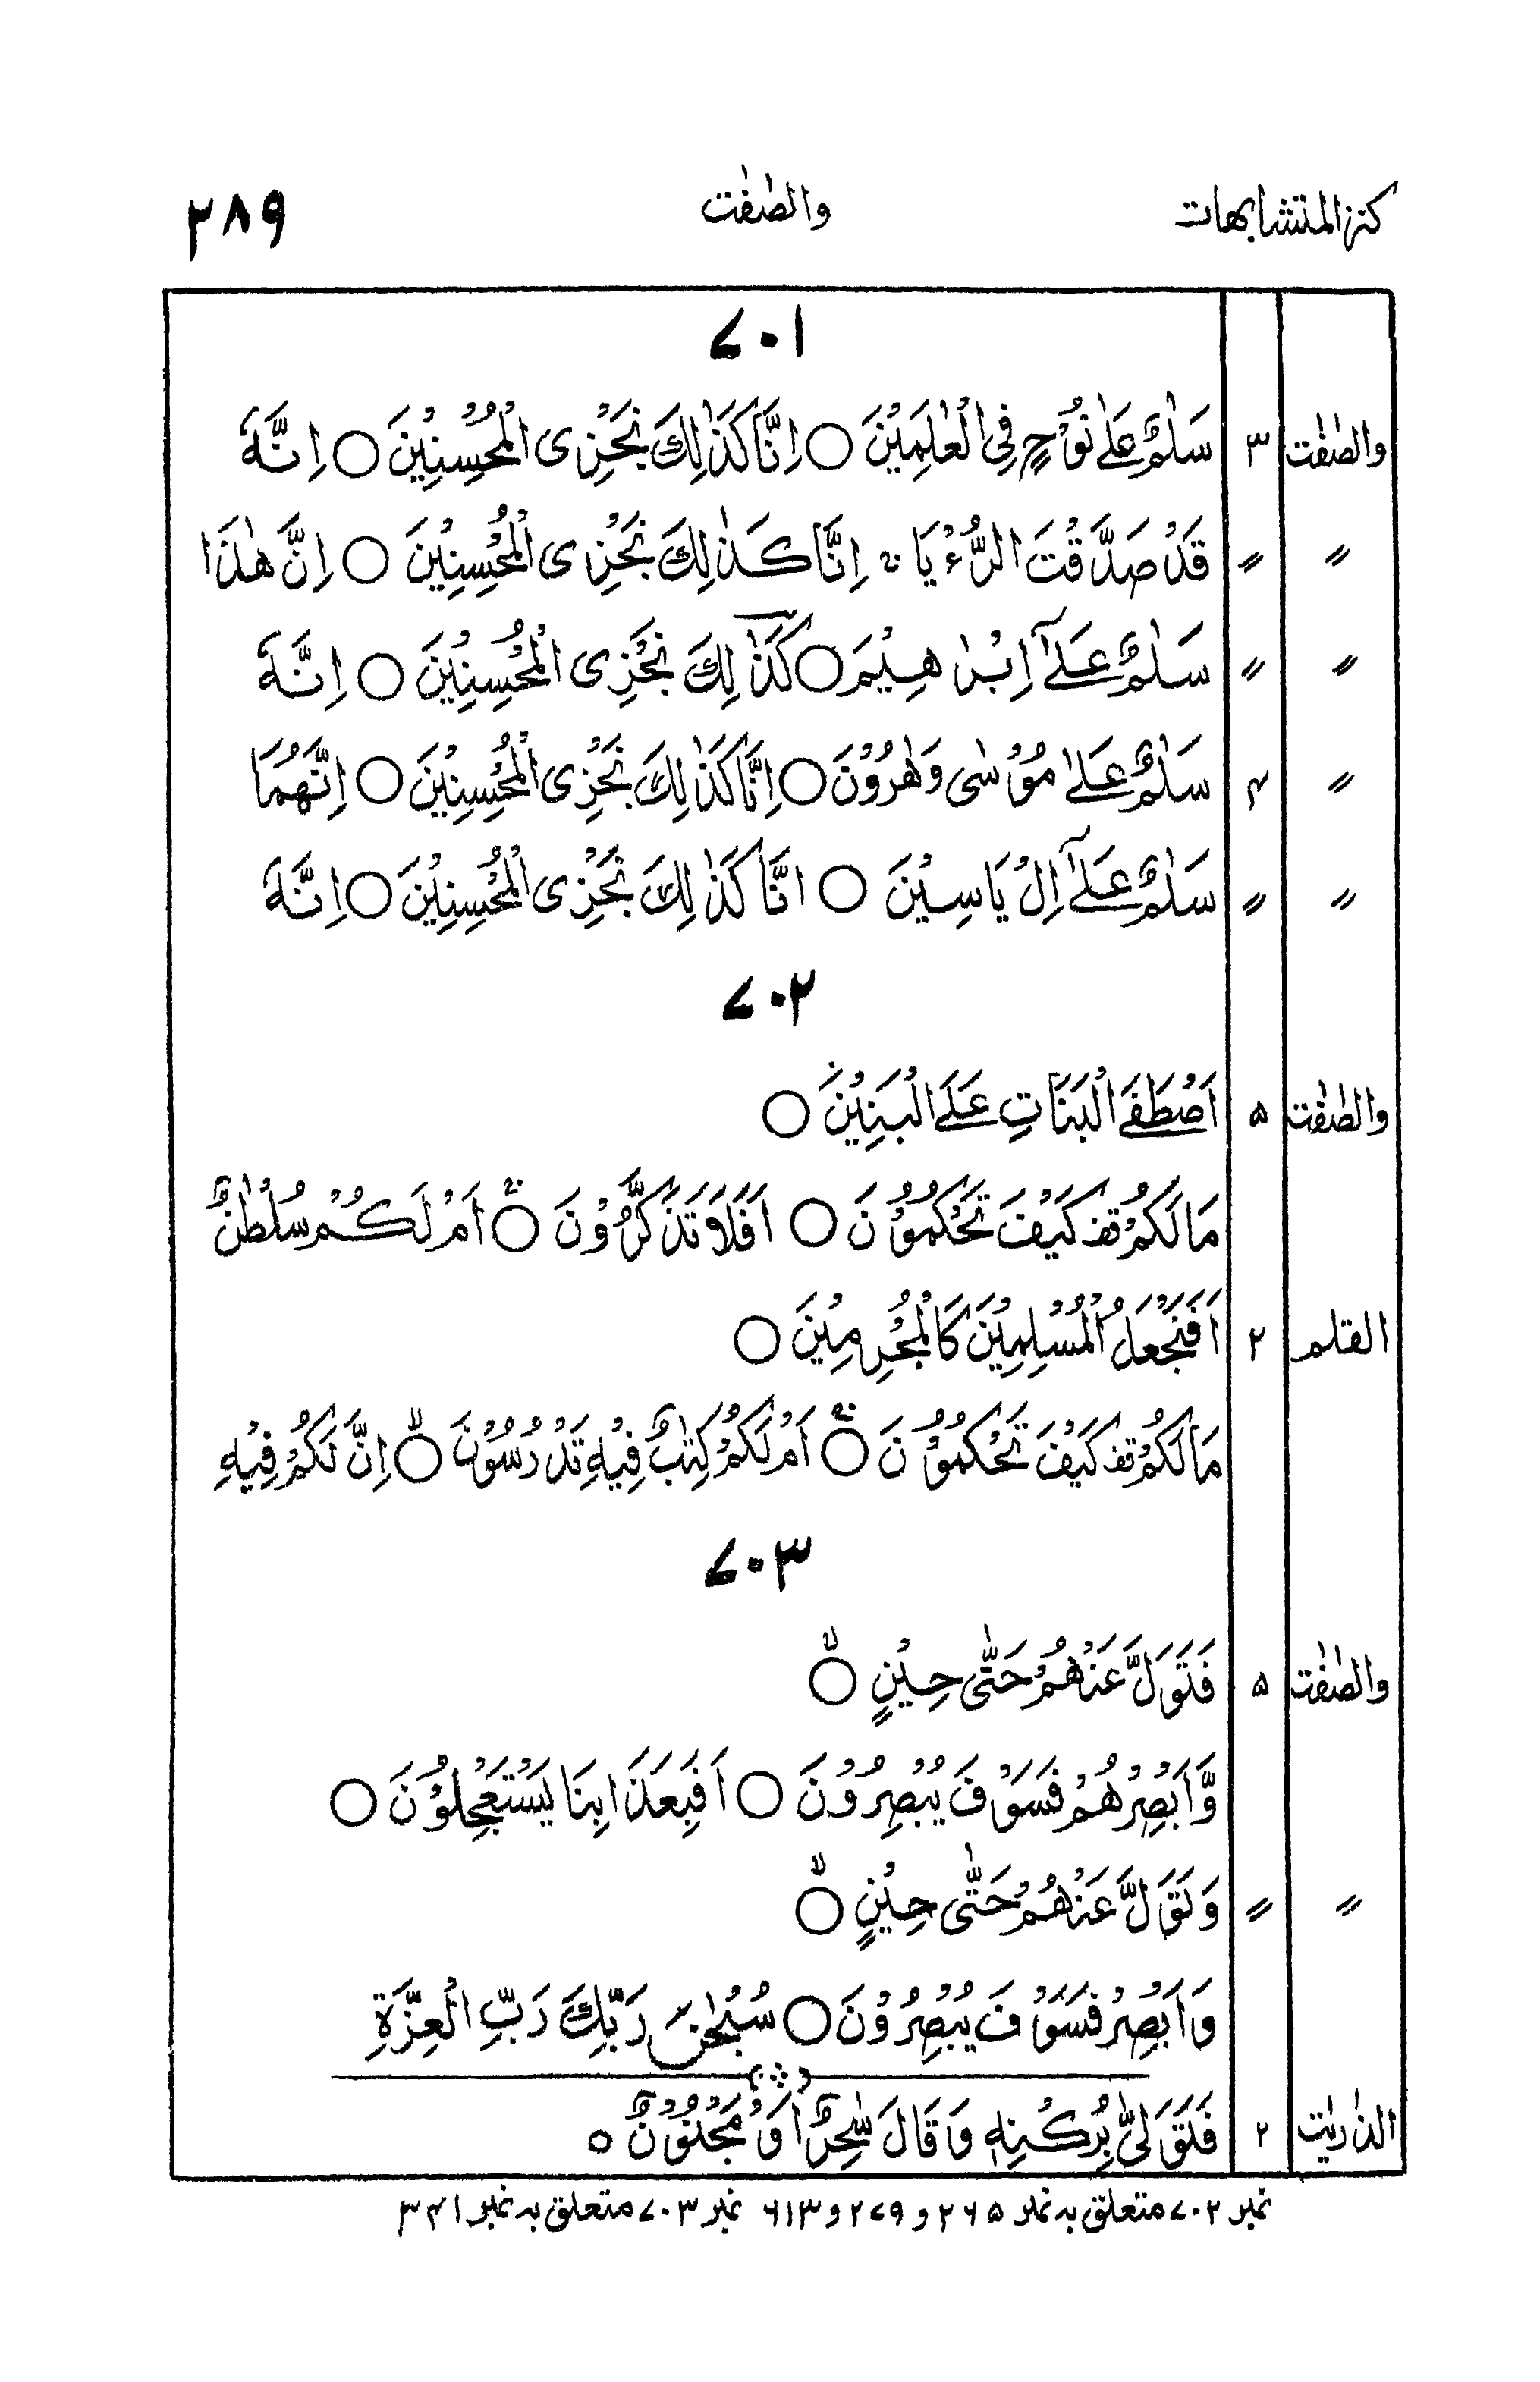 كنز المتشابهات والصّٰفّٰت ٣٨٩
٧٠١
والصّٰفّٰت ٣ سَلٰمٌ عَلٰى نُوْحٍ فِى الْعٰلَمِيْنَ ○ اِنَّا كَذٰلِكَ نَجْزِى الْمُحْسِنِيْنَ ○ اِنَّهٗ
〃 〃 قَدْ صَدَّقْتَ الرُّءْيَا ۚ اِنَّا كَذٰلِكَ نَجْزِى الْمُحْسِنِيْنَ ○ اِنَّ هٰذَا
〃 〃 سَلٰمٌ عَلٰٓى اِبْرٰهِيْمَ ○ كَذٰلِكَ نَجْزِى الْمُحْسِنِيْنَ ○ اِنَّهٗ
〃 ۴ سَلٰمٌ عَلٰى مُوْسٰى وَهٰرُوْنَ ○ اِنَّا كَذٰلِكَ نَجْزِى الْمُحْسِنِيْنَ ○ اِنَّهُمَا
〃 〃 سَلٰمٌ عَلٰٓى اِلْ يَاسِيْنَ ○ انَّا كَذٰلِكَ نَجْزِى الْمُحْسِنِيْنَ ○ اِنَّهٗ
٧٠٢
والصّٰفّٰت ۵ اَصْطَفَى الْبَنَاتِ عَلَى الْبَنِيْنَ ○
مَا لَكُمْ قف كَيْفَ تَحْكُمُوْنَ ○ اَفَلَا تَذَكَّرُوْنَ ○ۚ اَمْ لَكُمْ سُلْطٰنٌ
القلم ٢ اَفَنَجْعَلُ الْمُسْلِمِيْنَ كَالْمُجْرِمِيْنَ ○
مَا لَكُمْ قف كَيْفَ تَحْكُمُوْنَ ○ۚ اَمْ لَكُمْ كِتٰبٌ فِيْهِ تَدْرُسُوْنَ ○ۙ اِنَّ لَكُمْ فِيْهِ
٧٠٣
والصّٰفّٰت ۵ فَتَوَلَّ عَنْهُمْ حَتّٰى حِيْنٍ ○ۙ
وَّاَبْصِرْهُمْ فَسَوْفَ يُبْصِرُوْنَ ○ اَفَبِعَذَابِنَا يَسْتَعْجِلُوْنَ ○
〃 〃 وَتَوَلَّ عَنْهُمْ حَتّٰى حِيْنٍ ○ۙ
وَاَبْصِرْ فَسَوْفَ يُبْصِرُوْنَ ○ سُبْحٰنَ رَبِّكَ رَبِّ الْعِزَّةِ
الذّٰريٰت ٢ فَتَوَلّٰى بِرُكْنِهٖ وَقَالَ سٰحِرٌ اَوْ مَجْنُوْنٌ ○
نمبر ٧٠٢ متعلق بہ نمبر ٢۶۵ و ٢٧٩ و ۶١٣ نمبر ٧٠٣ متعلق بہ نمبر ٣۴١